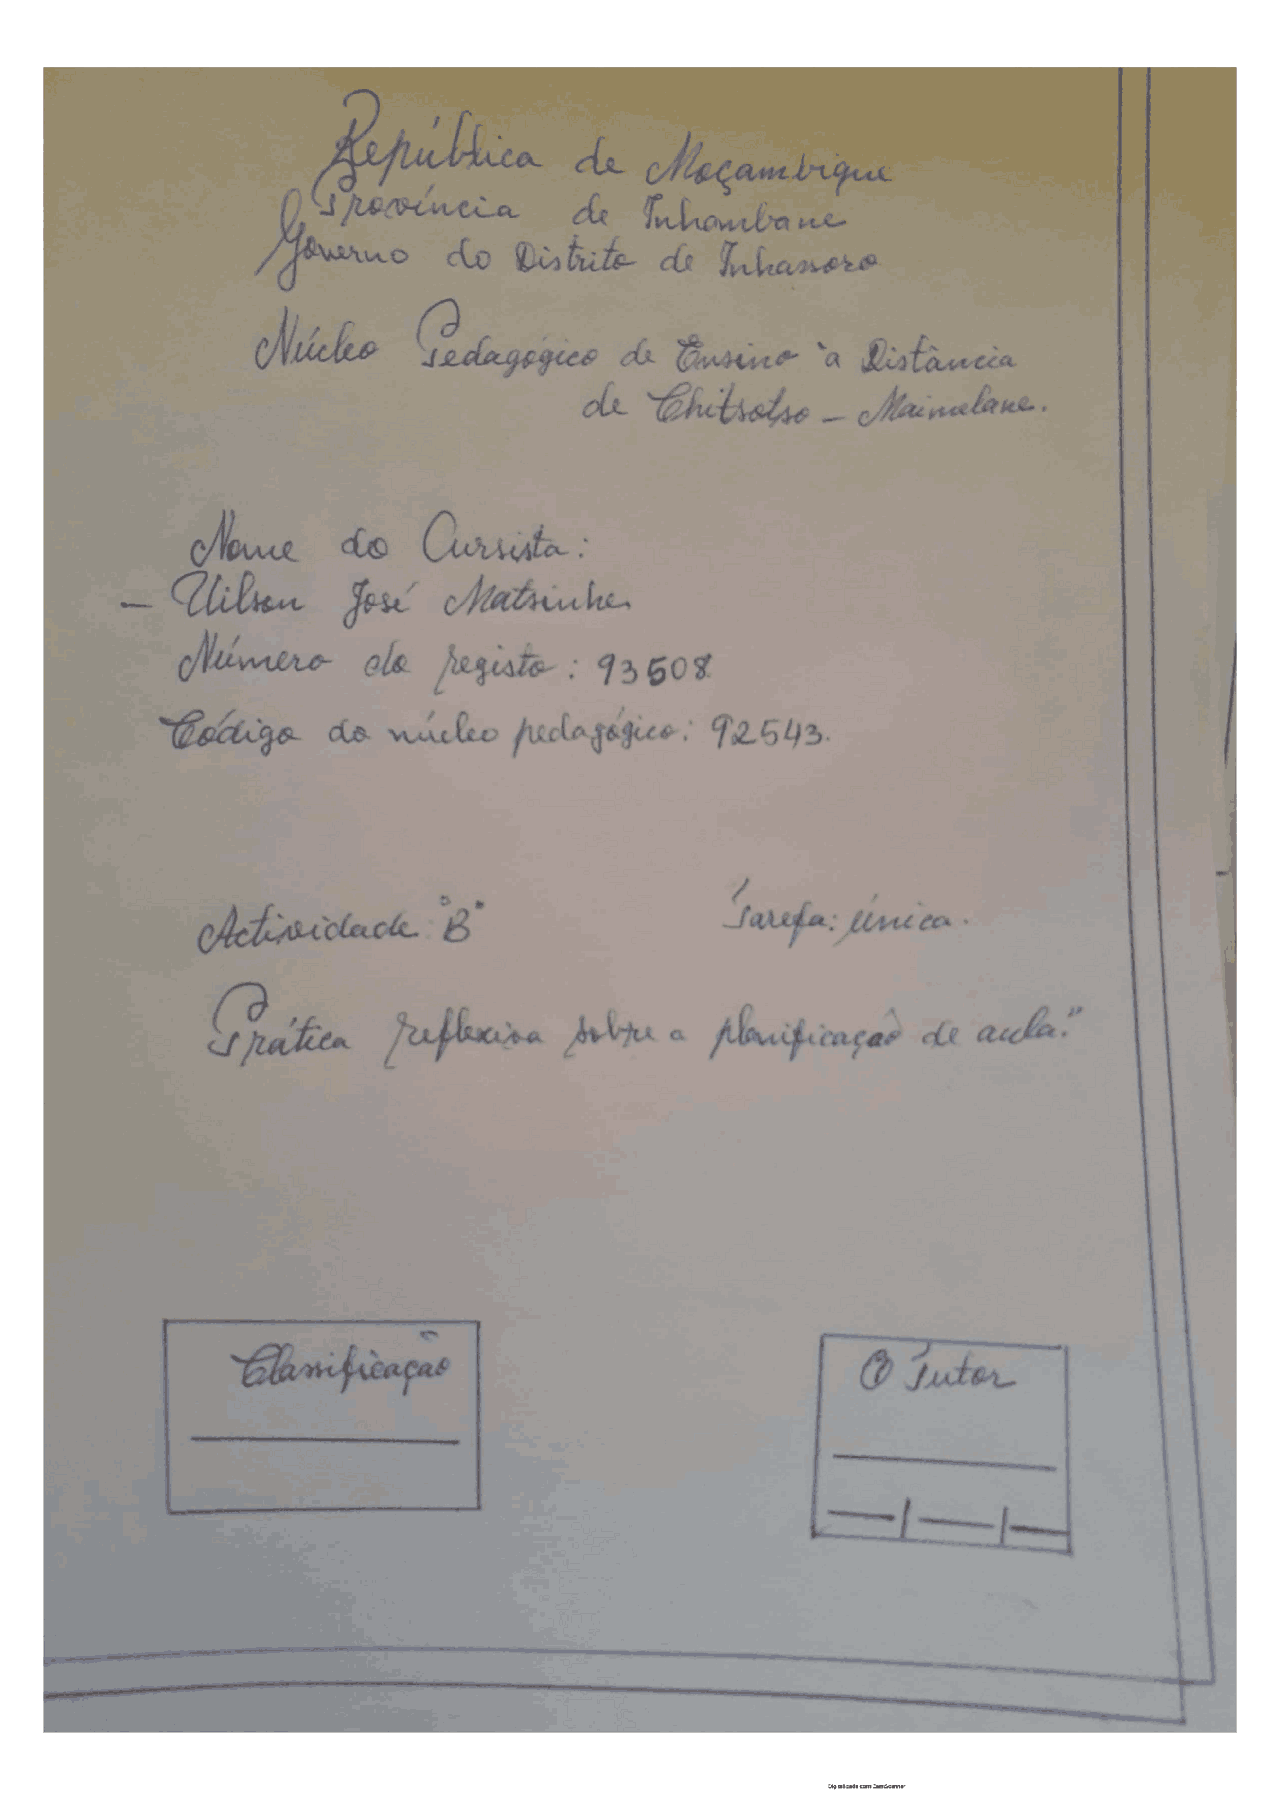 República de Moçambique
Província de Inhambane
Governo do Distrito de Inhassoro
Núcleo Pedagógico de Ensino à Distância
de Chitsotso - Maimelane.
Nome do Cursista:
- Uilson José Matsinhe
Número do registo: 93508
Código do núcleo pedagógico: 92543.
Actividade "B" Tarefa: única.
Prática reflexiva sobre a planificação de aula."
Classificação
O Tutor
Digitalizado com CamScanner